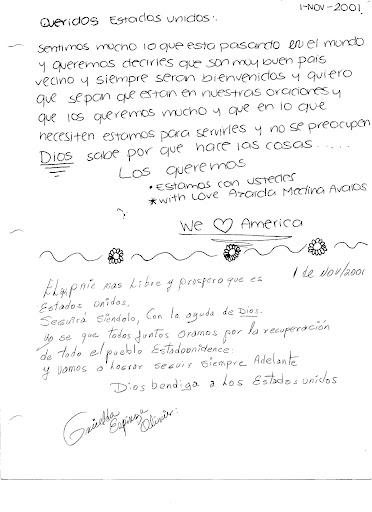 1-NOV-2001
Queridos Estados Unidos:.
Sentimos mucho lo que esta pasando en el mundo
y queremos decirles que son muy buen pais
vecino y siempre seran bienvenidos y quiero
que sepan que estan en nuestras oraciones y
que los queremos mucho y que en lo que
necesiten estamos para servirles y no se preocupen
Dios sabe por que hace las cosas.....
Los queremos
• Estamos con ustedes
* with Love Azaida Medina Avalos
We ♡ America
1 de NOV/2001
mas Libre y prospero que es
Estados Unidos.
Seguirá Siéndolo, Con la ayuda de Dios.
yo se que todos juntos oramos por la recuperación
de todo el pueblo Estadounidence.
y vamos a lograr seguir siempre Adelante
Dios bendiga a Los Estados unidos
Griselda
Espinoza